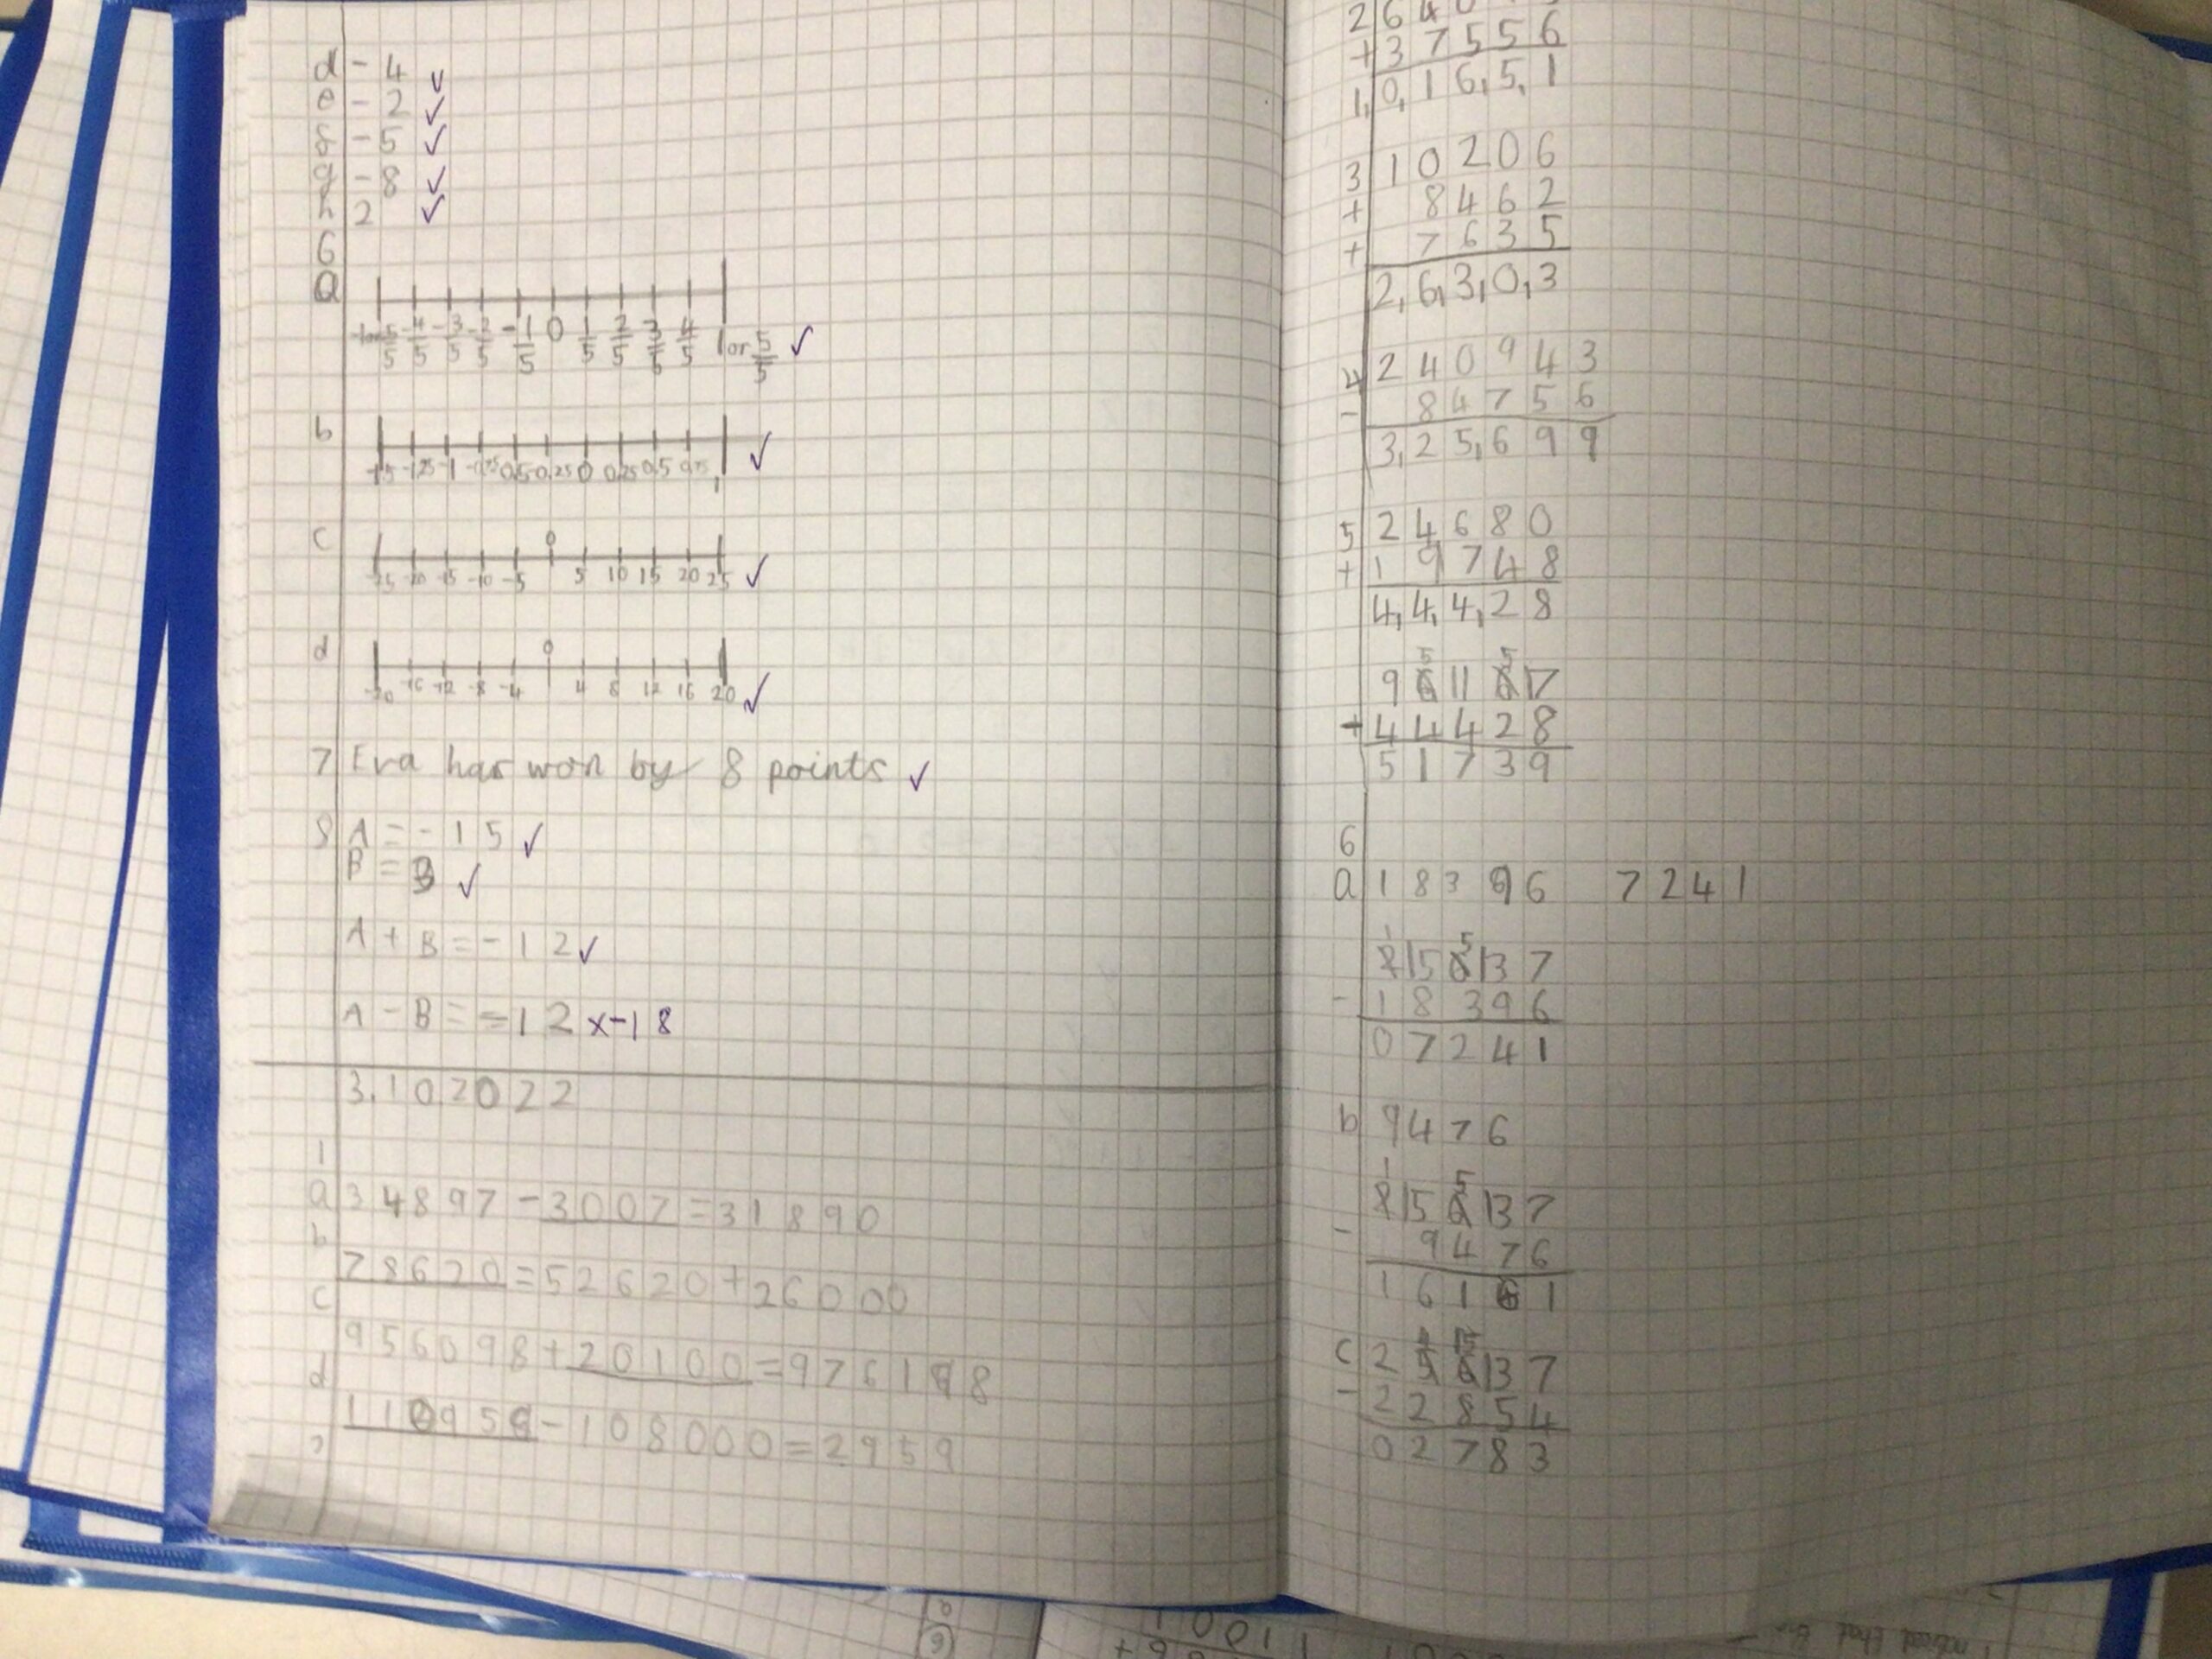 d - 4 ✓
e - 2 ✓
f - 5 ✓
g - 8 ✓
h 2 ✓
6
a
-1 or -5/5 -4/5 -3/5 -2/5 -1/5 0 1/5 2/5 3/5 4/5 1 or 5/5 ✓
b
-1.5 -1.25 -1 -0.75 0.5 -0.25 0 0.25 0.5 0.75 1 ✓
c 0
-25 -20 -15 -10 -5 5 10 15 20 25 ✓
d 0
-20 -16 -12 -8 -4 4 8 12 16 20 ✓
7 Eva has won by 8 points ✓
8 A = - 1 5 ✓
B = 3 ✓
A + B = - 1 2 ✓
A - B = - 1 2 x - 1 8
3.10.2022
1
a 34897 - 3007 = 31890
b
78620 = 52620 + 26000
c
956098 + 20100 = 976198
d
110959 - 108000 = 2959
2
+ 3 7 5 5 6
1 0 1 6 5 1
3 1 0 2 0 6
+ 8 4 6 2
+ 7 6 3 5
2 6 3 0 3
4 2 4 0 9 4 3
- 8 4 7 5 6
3 2 5 6 9 9
5 2 4 6 8 0
+ 1 9 7 4 8
4 4 4 2 8
5 5
9 6 11 6 17
- 4 4 4 2 8
5 1 7 3 9
6
a 1 8 3 9 6 7 2 4 1
1 5
2 15 6 13 7
- 1 8 3 9 6
0 7 2 4 1
b 9 4 7 6
1 5
2 15 6 13 7
- 9 4 7 6
1 6 1 6 1
4 15
c 2 5 6 13 7
- 2 2 8 5 4
0 2 7 8 3